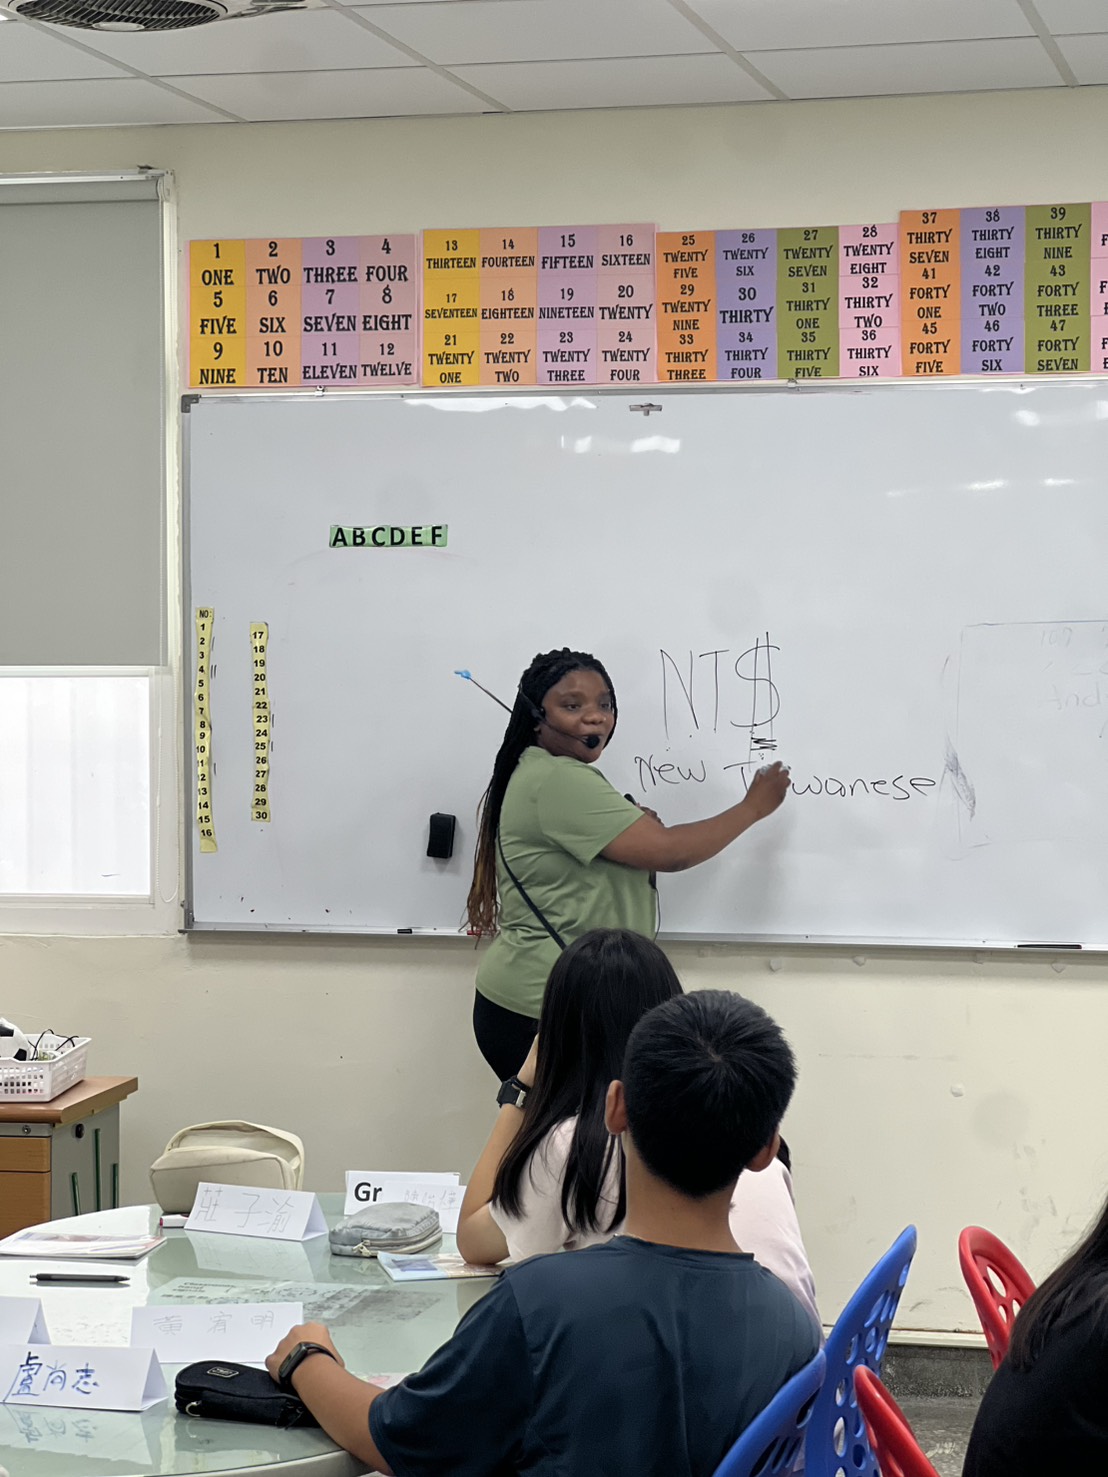 1 2 3 4
ONE TWO THREE FOUR
5 6 7 8
FIVE SIX SEVEN EIGHT
9 10 11 12
NINE TEN ELEVEN TWELVE
13 14 15 16
THIRTEEN FOURTEEN FIFTEEN SIXTEEN
17 18 19 20
SEVENTEEN EIGHTEEN NINETEEN TWENTY
21 22 23 24
TWENTY ONE TWENTY TWO TWENTY THREE TWENTY FOUR
25 26 27 28
TWENTY FIVE TWENTY SIX TWENTY SEVEN TWENTY EIGHT
29 30 31 32
TWENTY NINE THIRTY THIRTY ONE THIRTY TWO
33 34 35 36
THIRTY THREE THIRTY FOUR THIRTY FIVE THIRTY SIX
37 38 39
THIRTY SEVEN THIRTY EIGHT THIRTY NINE
41 42 43
FORTY ONE FORTY TWO FORTY THREE
45 46 47
FORTY FIVE FORTY SIX FORTY SEVEN
ABCDEF
NO:
1
2
3
4
5
6
7
8
9
10
11
12
13
14
15
16
17
18
19
20
21
22
23
24
25
26
27
28
29
30
NT$
New Taiwanese
莊子渝
Gr
黃宥明
盧尚志